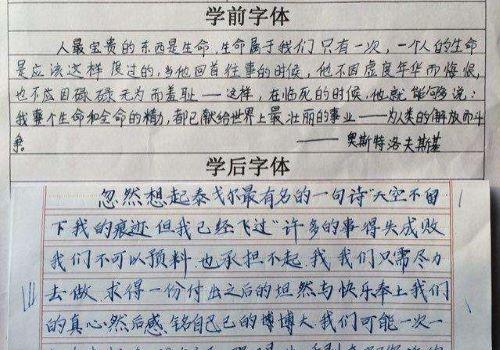 学前字体
人最宝贵的东西是生命,生命属于我们只有一次,一个人的生命
是应该这样度过的:当他回首往事的时候,他不因虚度年华而悔恨,
也不应因碌碌无为而羞耻——这样,在临死的时候,他就能够说:
我整个生命和全命的精力,都已献给世界上最壮丽的事业——为人类的解放而斗
争。——奥斯特洛夫斯基
学后字体
忽然想起泰戈尔最有名的一句诗“天空不留
下我的痕迹,但我已经飞过”许多的事得失成败
我们不可以预料 也承担不起,我 我们只需尽力
去做 求得一份付出之后的坦然与快乐奉上我们
的真心,然后感 铭自己已的博博大.我们可能一次一